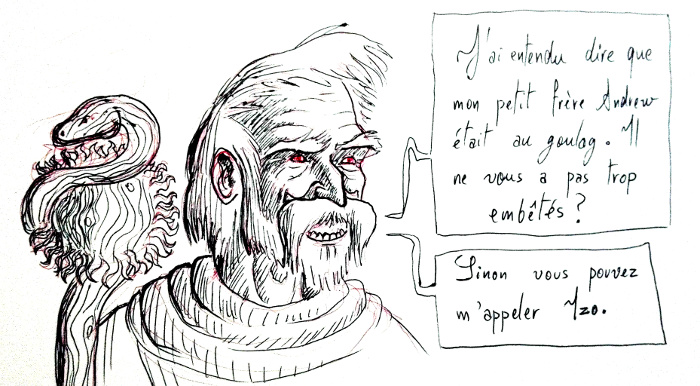 J'ai entendu dire que
mon petit frère Andrew
était au goulag. Il
ne vous a pas trop
embêtés ?
Sinon vous pouvez
m'appeler Izo.